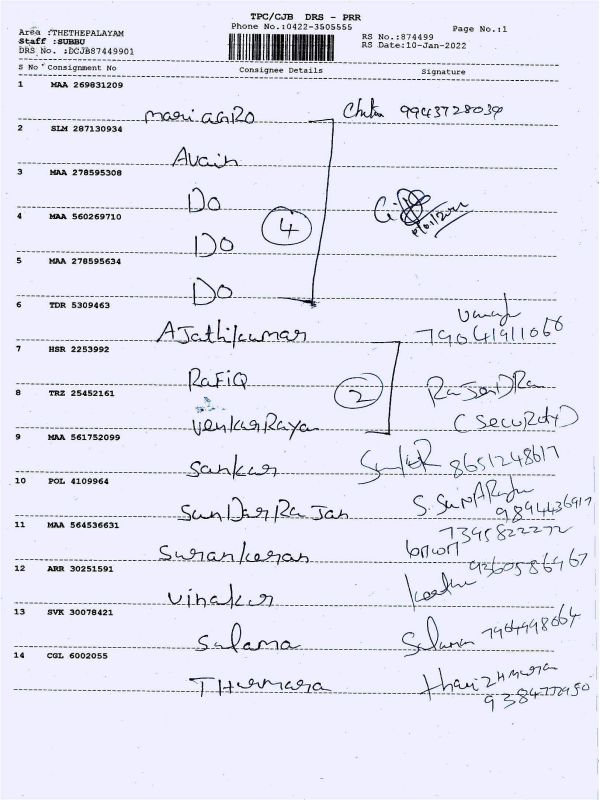 TPC/CJB DRS - PRR
Phone No.:0422-3505555
Page No.:1
Area :THETHEPALAYAM
Staff :SUBBU
DRS No. :DCJB87449901
RS No.:874499
RS Date:10-Jan-2022
S No Consignment No Consignee Details Signature
1 MAA 269831209
mariagro 9943728039
2 SLM 287130934
Avain
3 MAA 278595308
Do
4
4 MAA 560269710
Do
5 MAA 278595634
Do
6 TDR 5309463
AJathikumar
79041911066
7 HSR 2253992
RaFiQ
2
RajenDRa
8 TRZ 25452161
venkatRaya
(SecuRity)
9 MAA 561752099
Sankar 8651248617
10 POL 4109964
SunDarRaJan
9894436917
11 MAA 564536631
7395822272
Surankaran
12 ARR 30251591
9360586967
vinakar
13 SVK 30078421
Salama Salama
14 CGL 6002055
THurmara